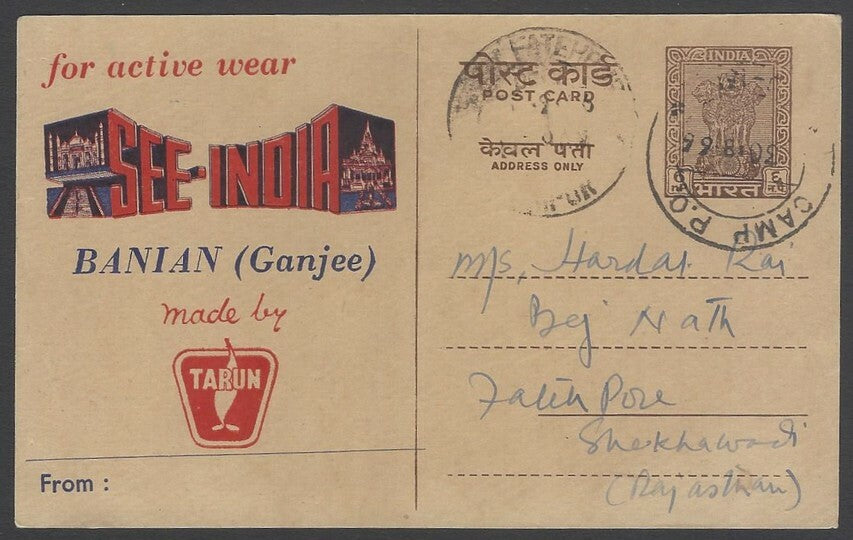 for active wear
SEE-INDIA
BANIAN (Ganjee)
made by
TARUN
From :
पोस्ट कार्ड
POST CARD
केवल पता
ADDRESS ONLY
INDIA
भारत
CAMP P.O.
M/s, Hardat Rai
Bej Nath
Fateh Pore
Shekhawadi
(Rajasthan)